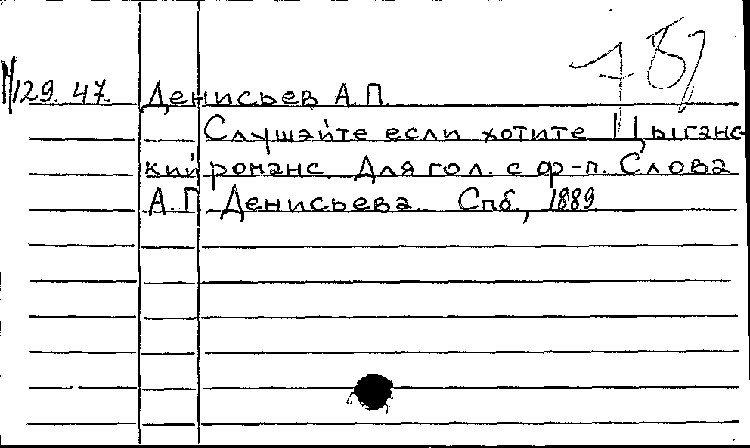 789
М129.47 Денисьев А.П.
Слушайте если хотите Цыганс-
кий романс. Для гол. с ф-п. Слова
А.П. Денисьева. Спб, 1889